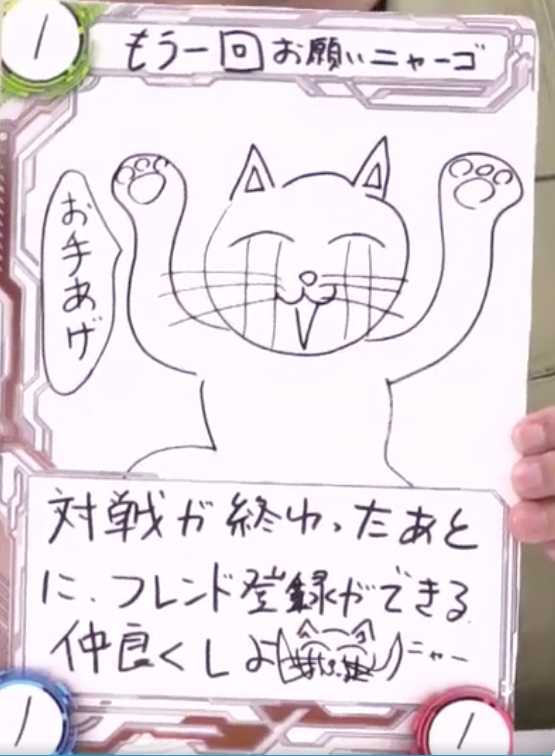 1
もう一回お願いニャーゴ
お手あげ
対戦が終わったあと
に、フレンド登録ができる
仲良くしよ
ニャー
1
1